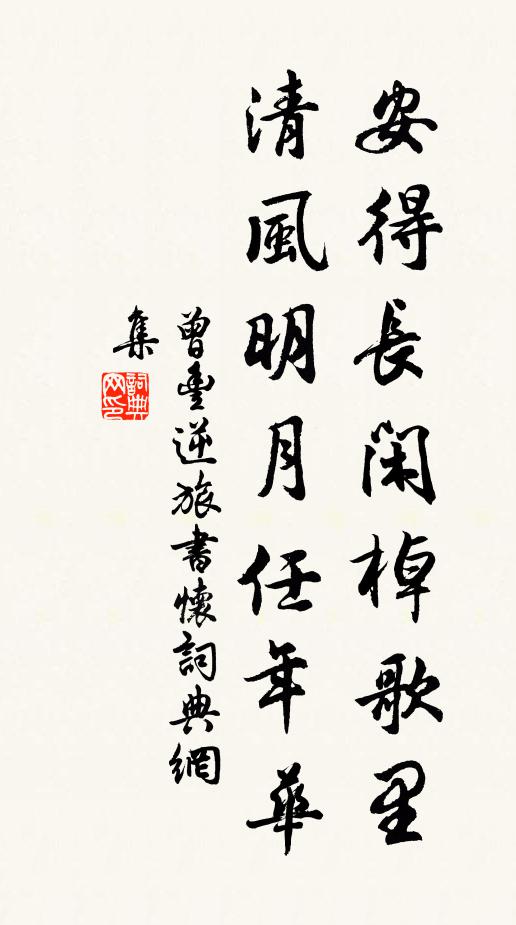 安得長閑棹歌里
清風明月任年華
曾豐逆旅書懷詞典網
集
詞典網印